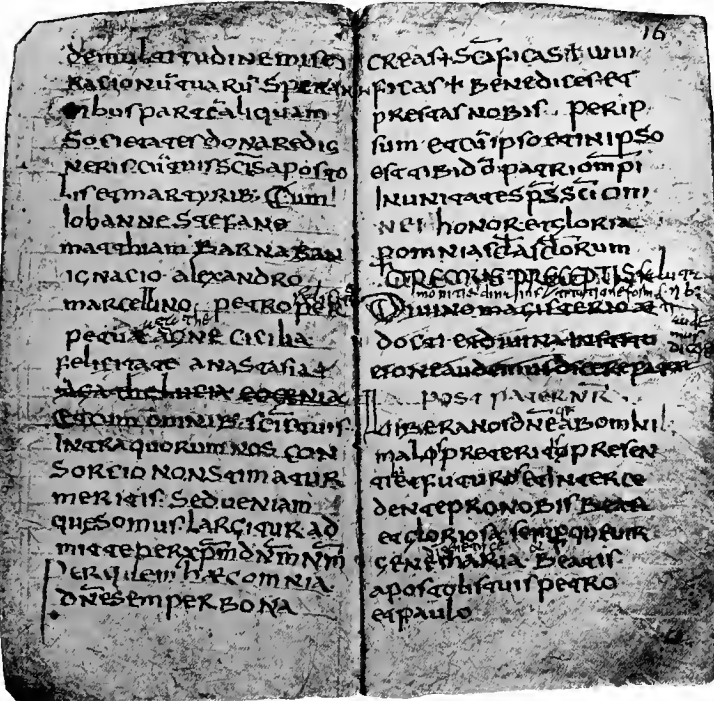 demultitudinemise
rationū tuarū Speran
tibus partē aliquam
Societates donaredig
neris cū tuis scīs aposto
lis et martyrib: Cum
Iohanne Stefano
matthiam Barnaban
ignacio alexandro
marcellino petro per
petua Agne cicilia
felicitate anastasia &
Agathe lucia eogenia
Et cum omnib: scīs tuis
Intra quorum nos con
Sortio non stimatur
meritis Sed ueniam
quesomus largitur ad
mitte per xp̄m dn̄m nr̄m
Per quem hæc omnia
dn̄e semper bona
16
creas + Scīficas + uiui
ficas + Benedices et
prestas nobis Per ip
sum et cū ipso et in ipso
est tibi dō patri om̄pi
In unitates sp̄s scī om
nes honor et gloria
p omnia scła sclorum
OREMUS PRECEPTIS
Diuino magisterio æ
docti et diuina institu
tione audemus dicere pater
POST PATER NR̄
Libera nos dn̄e ab omni
malo preterito presen
te et futuro et interce
dente pro nobis Beata
et gloriosa semperque uir
gene maria Beatis
apostolis tuis petro
et paulo